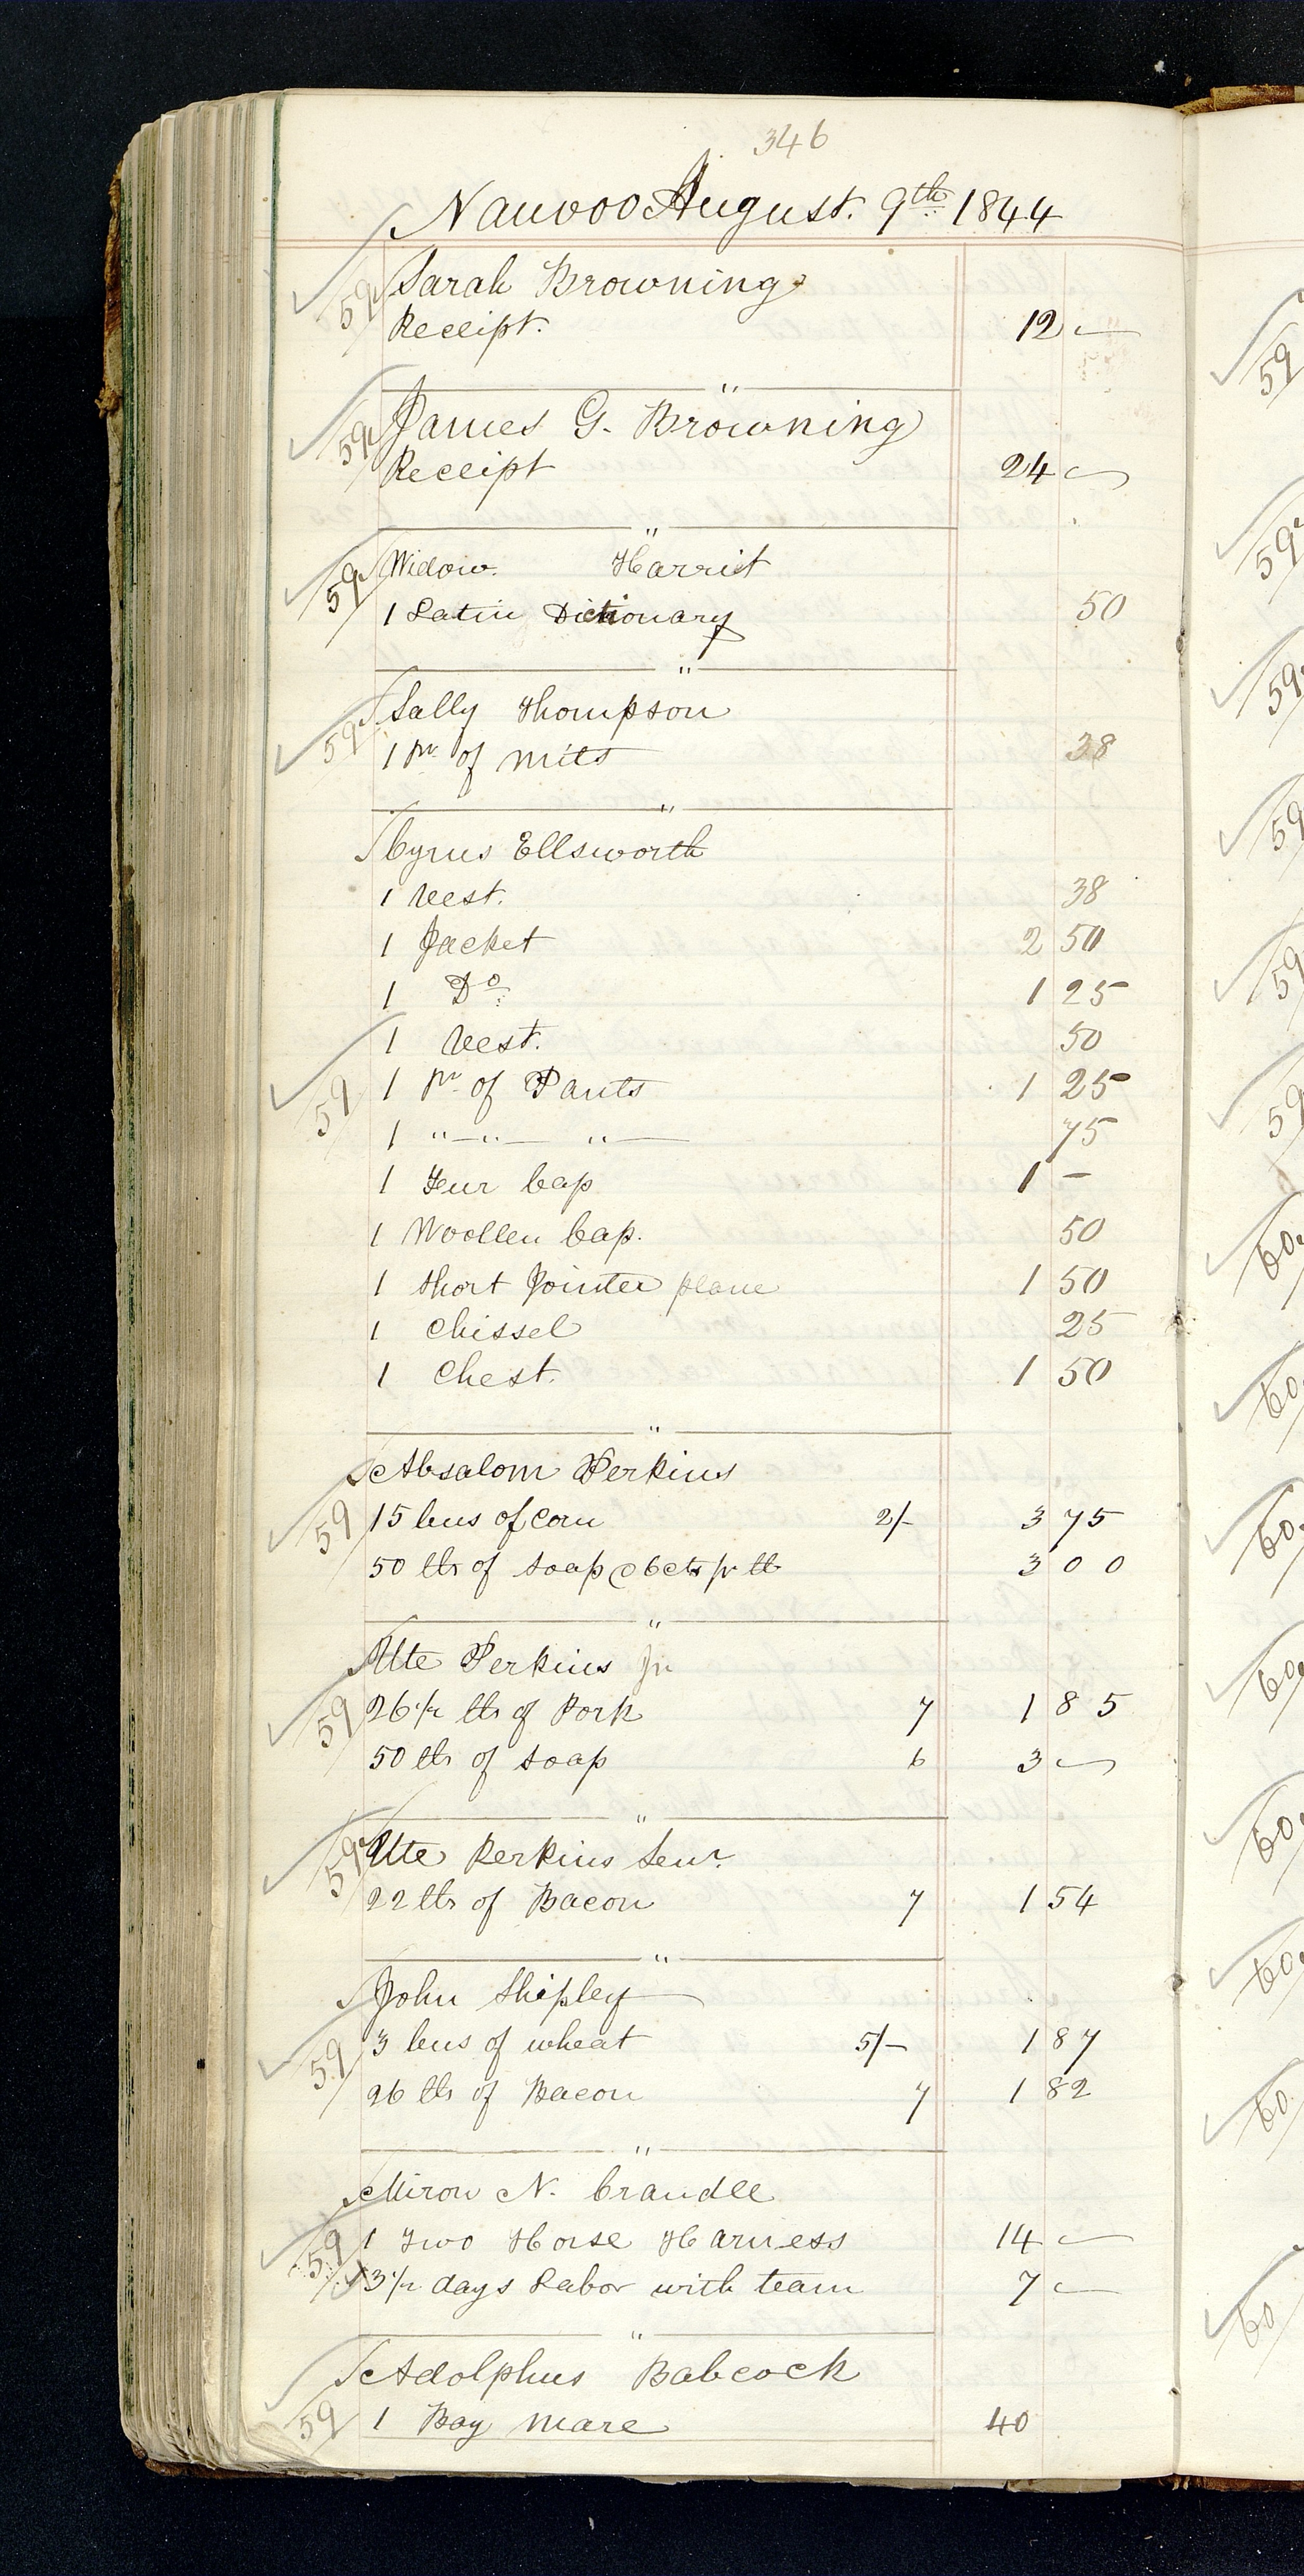 346
Nauvoo August. 9th 1844
59 Sarah Browning
Receipt. 12 —
"
59 James G. Browning
Receipt 24 —
"
59 Widow. Harriet
1 Latin Dictionary 50
"
59 Sally Thompson
1 pr of mits 38
"
Cyrus Ellsworth
1 Vest. 38
1 Jacket 2 50
1 Do 1 25
1 Vest. 50
59 1 pr of Pants 1 25
1 " — " — " — 75
1 Feur Cap 1 —
1 Woollen Cap. 50
1 Short Jointer plane 1 50
1 Chissel 25
1 Chest. 1 50
"
Absalom Perkins
59 15 bus of Corn 2/- 3 75
50 lbs of soap @ 6 cts pr lb 3 00
"
Ute Perkins Jr
59 26 1/2 lbs of Pork 7 1 85
50 lbs of soap 6 3 —
"
59 Ute Perkins Senr.
22 lbs of Bacon 7 1 54
"
John Shipley
59 3 bus of wheat 5/- 1 87
26 lbs of Bacon 7 1 82
"
Miron N. Crandle
59 1 Two Horse Harness 14 —
3 1/2 days Labor with team 7 —
"
Adolphus Babcock
59 1 Bay mare 40
59
59
59
59
59
59
60
60
60
60
60
60
60
60